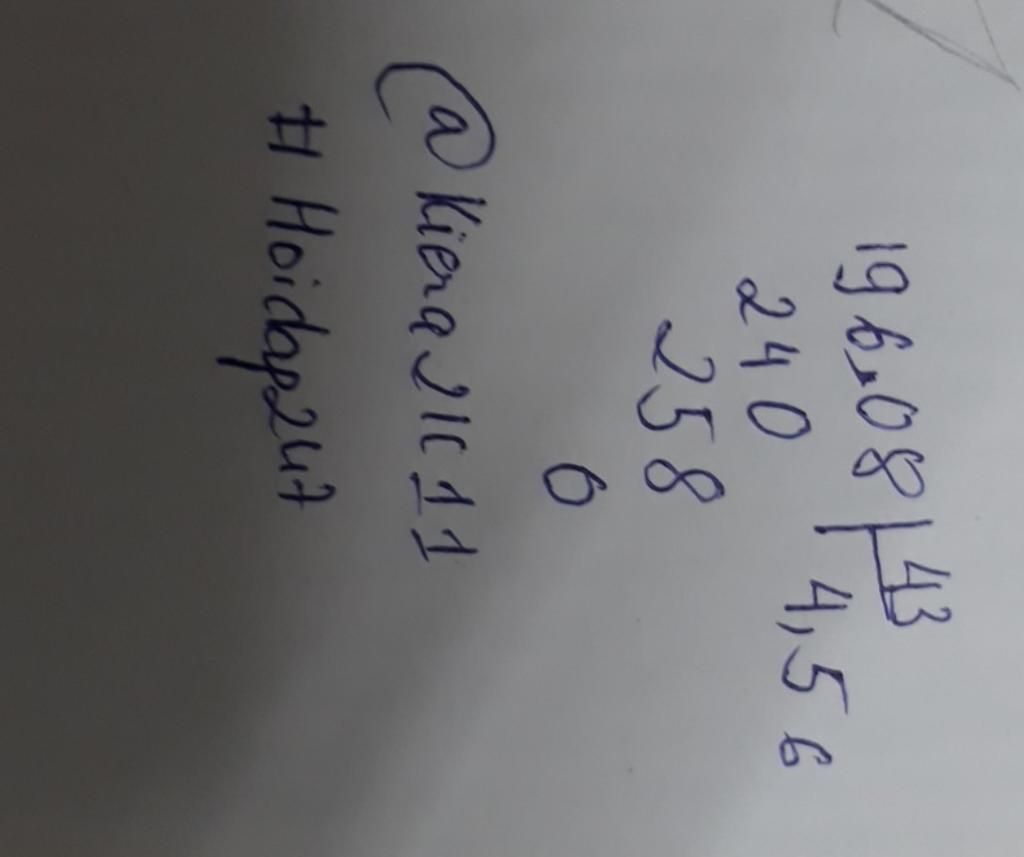 196,08 43
240 4,56
258
0
@Kiena2K11
# Hoidap247